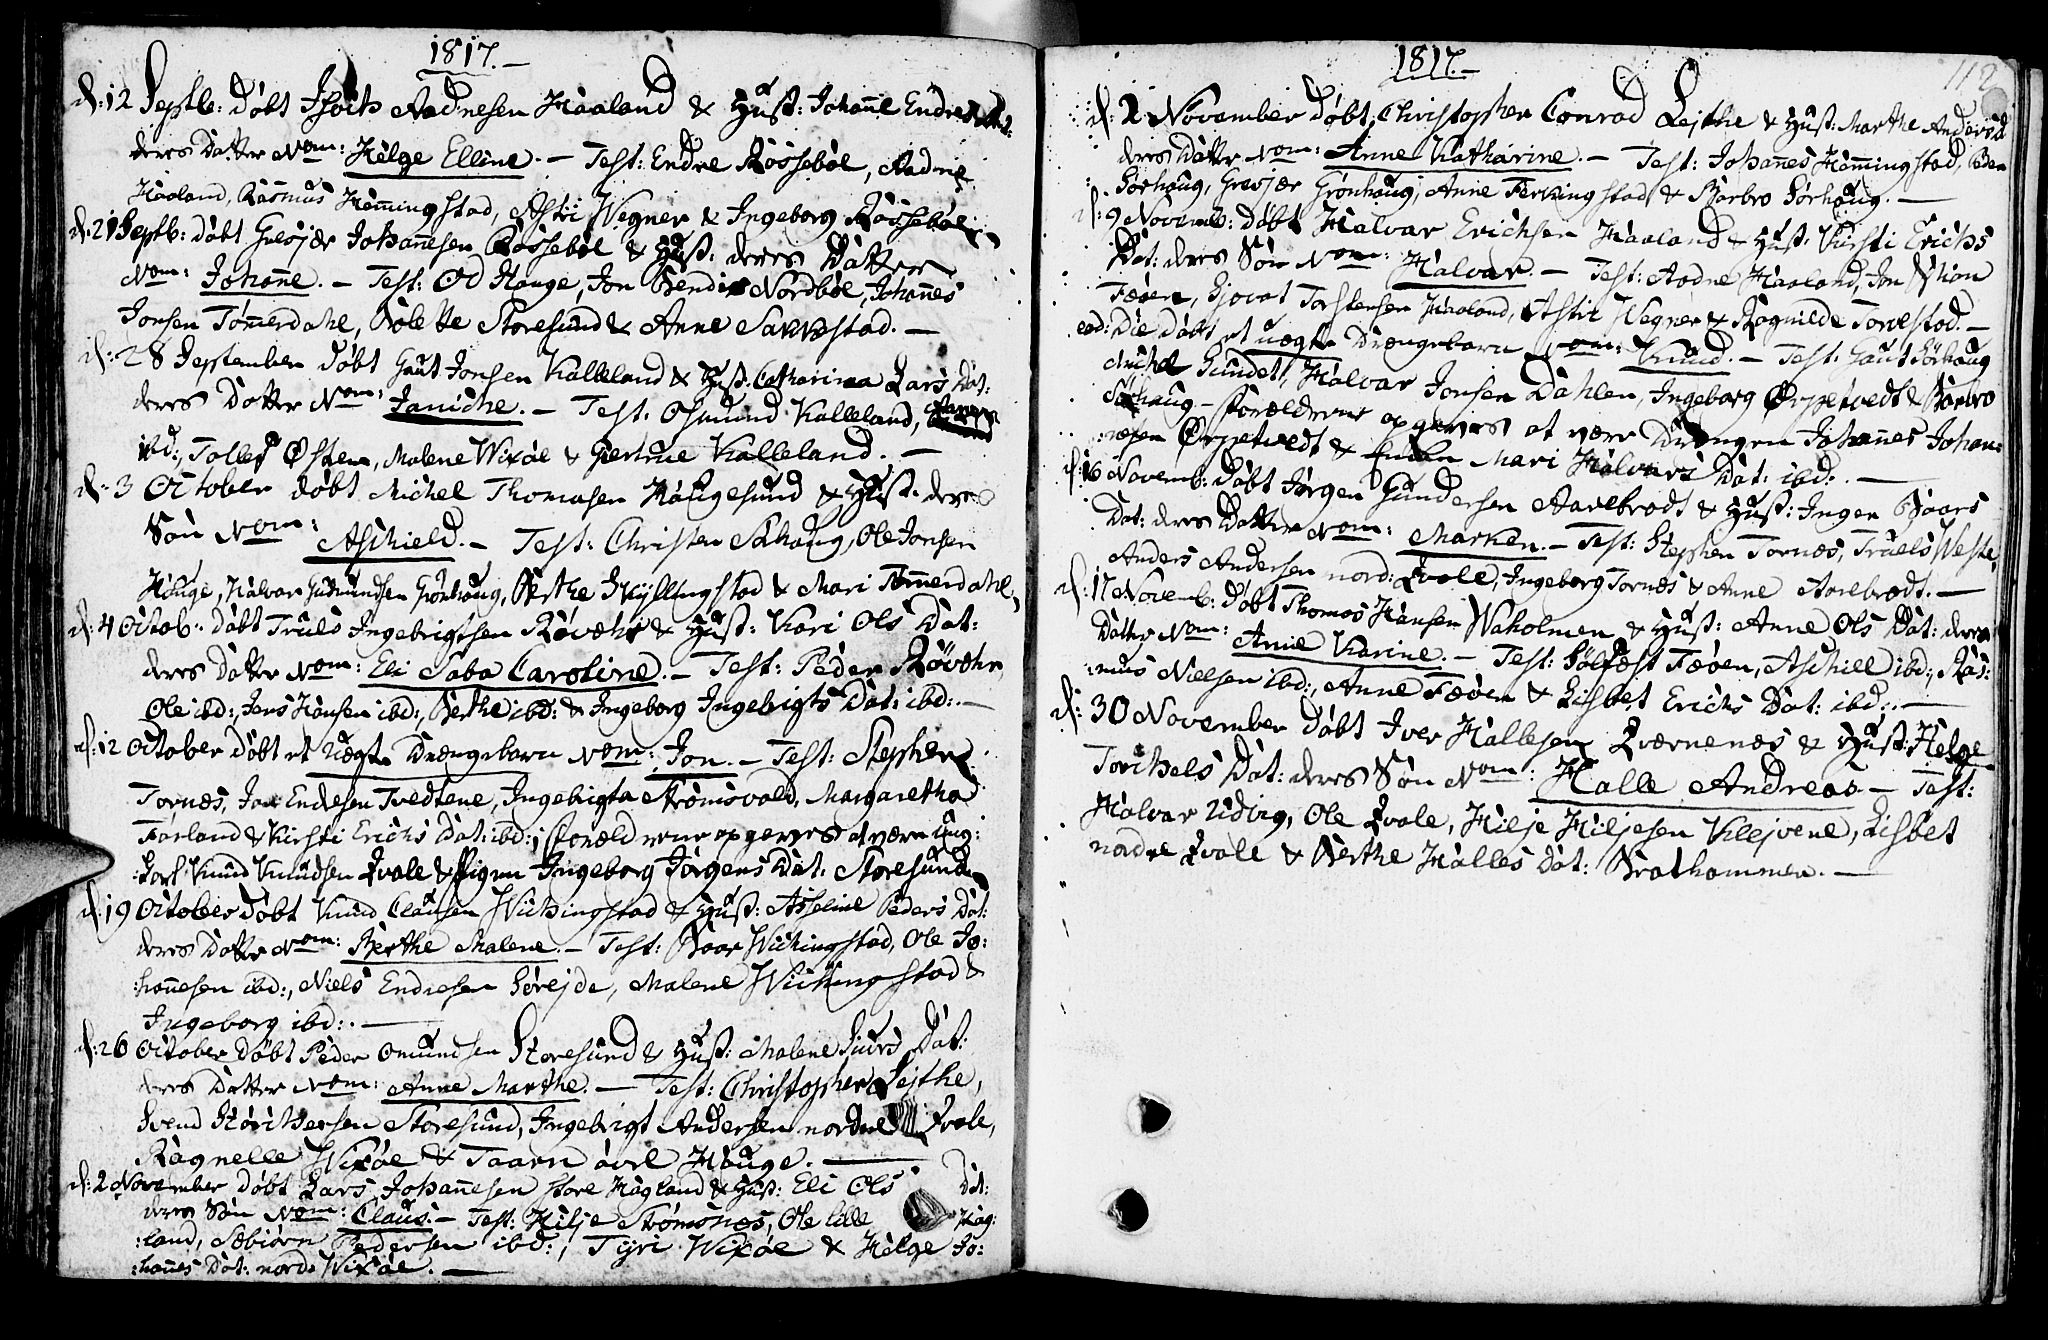 1817.
d: 12 Septb: døbt Isach Aadnesen Haaland & Hust: Johanne Endres Dat:
deres Datter Nom: Helge Elline. – Test: Endre Røssebøe, Aadne
Haaland, Rasmus Hemmingstad, Astri Wegner & Ingeborg Røssebøe. –
d: 21 Septb: døbt Gresjær Johannesen Røssebøe & Hust: deres Datter
Nom: Johanne. – Test: Od Hauge, Jon Bendix Nordbøe, Johannes
Jonsen Tømerdahl, Bolette Storesund & Anne Sakkestad. –
d: 28 September døbt Gaut Jonsen Kalleland & Hust: Catharina Lars Dat:
deres Datter Nom: Janiche. – Test: Osmund Kalleland,
ibd:, Tolles Østen, Malene Wixøe & Giertrue Kalleland. –
d: 3 October døbt Michel Thomasen Haugesund & Hust: deres
Søn Nom: Aschield. – Test: Christen Sørhaug, Ole Jonsen
Hauge, Halvor Gudmundsen Grønhaug, Berthe Skyllingstad & Mari Tømmerdahl. –
d: 4 Octob: døbt Truls Ingebrigtsen Røvæhr & Hust: Kari Ols Dat:
deres Datter Nom: Eli Saba Caroline. – Test: Peder Røvæhr,
Ole ibd:, Jens Hansen ibd:, Berthe ibd: & Ingeborg Ingebrigts Dat: ibd:. –
d: 12 October døbt et uægte Drængebarn Nom: Jon. – Test: Stephen
Tornæs, Jon Endresen Tvedtene, Ingebrigta Strømsvold, Margaretha
Førland & Kirsti Erichs Dat: ibd:; Forældrene opgeves at være Ung:
karl Knud Knudsen Qvale & Pigen Ingeborg Jørgens Dat: Storesund. –
d: 19 October døbt Knud Clausen Wichingstad & Hust: Asseline Peders Dat:
deres Datter Nom: Berthe Malene. – Test: Baar Wichingstad, Ole Jo:
:hannesen ibd:, Niels Endresen Sørejde, Malene Wichingstad &
Ingeborg ibd:. –
d: 26 October døbt Peder Omundsen Storesund & Hust: Malene Siurs Dat:
deres Datter Nom: Anne Marthe. – Test: Christopher Lejthe,
Svend Størchersen Storesund, Ingebrigt Andersen nordre Qvale,
Ragnelle Wixøe & Taarn øvre Hauge. –
d: 2 November døbt Lars Johannesen store Hagland & Hust: Eli Ols Dat:
deres Søn Nom: Claus. – Test: Hilje Strømsnes, Ole lille Hag:
:land, Sæbiørn Pedersen ibd:, Tyri Wixøe & Helge Jo:
:hannes Dat: nord: Wixøe. –
1817. –
112
d: 2 November døbt Christopher Conrad Lejthe & Hust: Marthe Anders D
deres Datter Nom: Anne Katharine. – Test: Johannes Hemmingstad, Ben
Sørhaug, Gresjær Grønhaug, Anne Ferkingstad & Barbro Sørhaug. –
d: 9 Novemb: døbt Halvar Erichsen Haaland & Hust: Kirsti Erichs
Dat: deres Søn Nom: Halvar. – Test: Aadne Haaland, Jon Schion
Fæøen, Sjovat Torstensen Haaland, Astri Wegner & Ragnilde Torvestad. –
eod: Die døbt et uægte Drængebarn Nom: Knud. – Test: Gaut Sørhaug
Michel Sundet, Halvar Jonsen Dahlen, Ingeborg Ørpetvedt & Barbro
Sørhaug – Forældrene opgeves at være Drengen Johannes Johan:
:nesen Ørpetvedt & Mari Halvors Dat: ibd:. –
d: 16 Novemb: døbt Jørgen Gundersen Aarebrodt & Hust: Inger Baars
Dat: deres Datter Nom: Marken. – Test: Stephen Tornæs, Truels Weste,
Anders Andersen nord: Qvale, Ingeborg Tornæs & Anne Aarebrodt. –
d: 17 Novemb: døbt Thomas Hansen Waholmen & Hust: Anne Ols Dat: deres
Datter Nom: Anne Karine. – Test: Sølfæst Fæøen, Aschill ibd:, Ras:
:mus Nielsen ibd:, Anne Fæøen & Lisbet Erichs Dat: ibd:. –
d: 30 November døbt Iver Hallesen Qværnenæs & Hust: Helge
Torchels Dat: deres Søn Nom: Halle Andreas – Test:
Halvar Udvig, Ole Qvale, Hilje Hiljesen Klejvene, Lisbet
nordre Qvale & Berthe Halles Dat: Brathammer. –